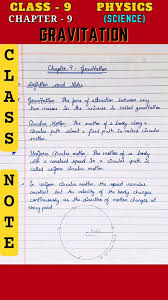 CLASS - 9 PHYSICS
CHAPTER - 9 (SCIENCE)
GRAVITATION
CLASS NOTE
Chapter 9 - Gravitation
Definition and Notes
Gravitation: The force of attraction between any
two masses in the universe is called gravitation
Circular Motion: The motion of a body along a
circular path about a fixed path is called circular
motion.
Uniform Circular motion: The motion of a body
with a constant speed in a circular path is
called uniform circular motion.
In uniform circular motion, the speed remains
constant but the velocity of the body changes
continuously as the direction of motion changes at
every point.